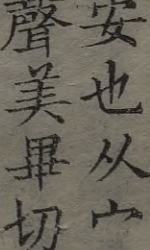 安也从宀
聲美畢切